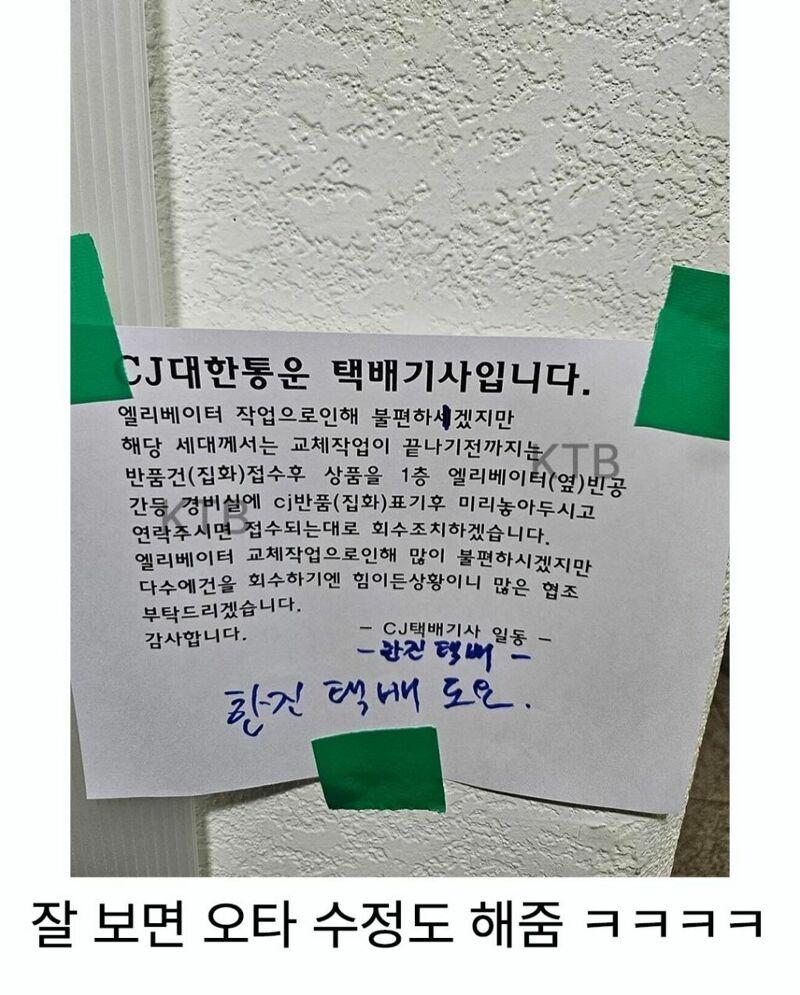 CJ대한통운 택배기사입니다.
엘리베이터 작업으로인해 불편하시겠지만
해당 세대께서는 교체작업이 끝나기전까지는
반품건(집화)접수후 상품을 1층 엘리베이터(옆)빈공
간등 경비실에 cj반품(집화)표기후 미리놓아두시고
연락주시면 접수되는대로 회수조치하겠습니다.
엘리베이터 교체작업으로인해 많이 불편하시겠지만
다수에건을 회수하기엔 힘이든상황이니 많은 협조
부탁드리겠습니다.
감사합니다.
- CJ택배기사 일동 -
- 한진 택배 -
한진 택배 도요.
KTB
KTB
잘 보면 오타 수정도 해줌 ㅋㅋㅋㅋ